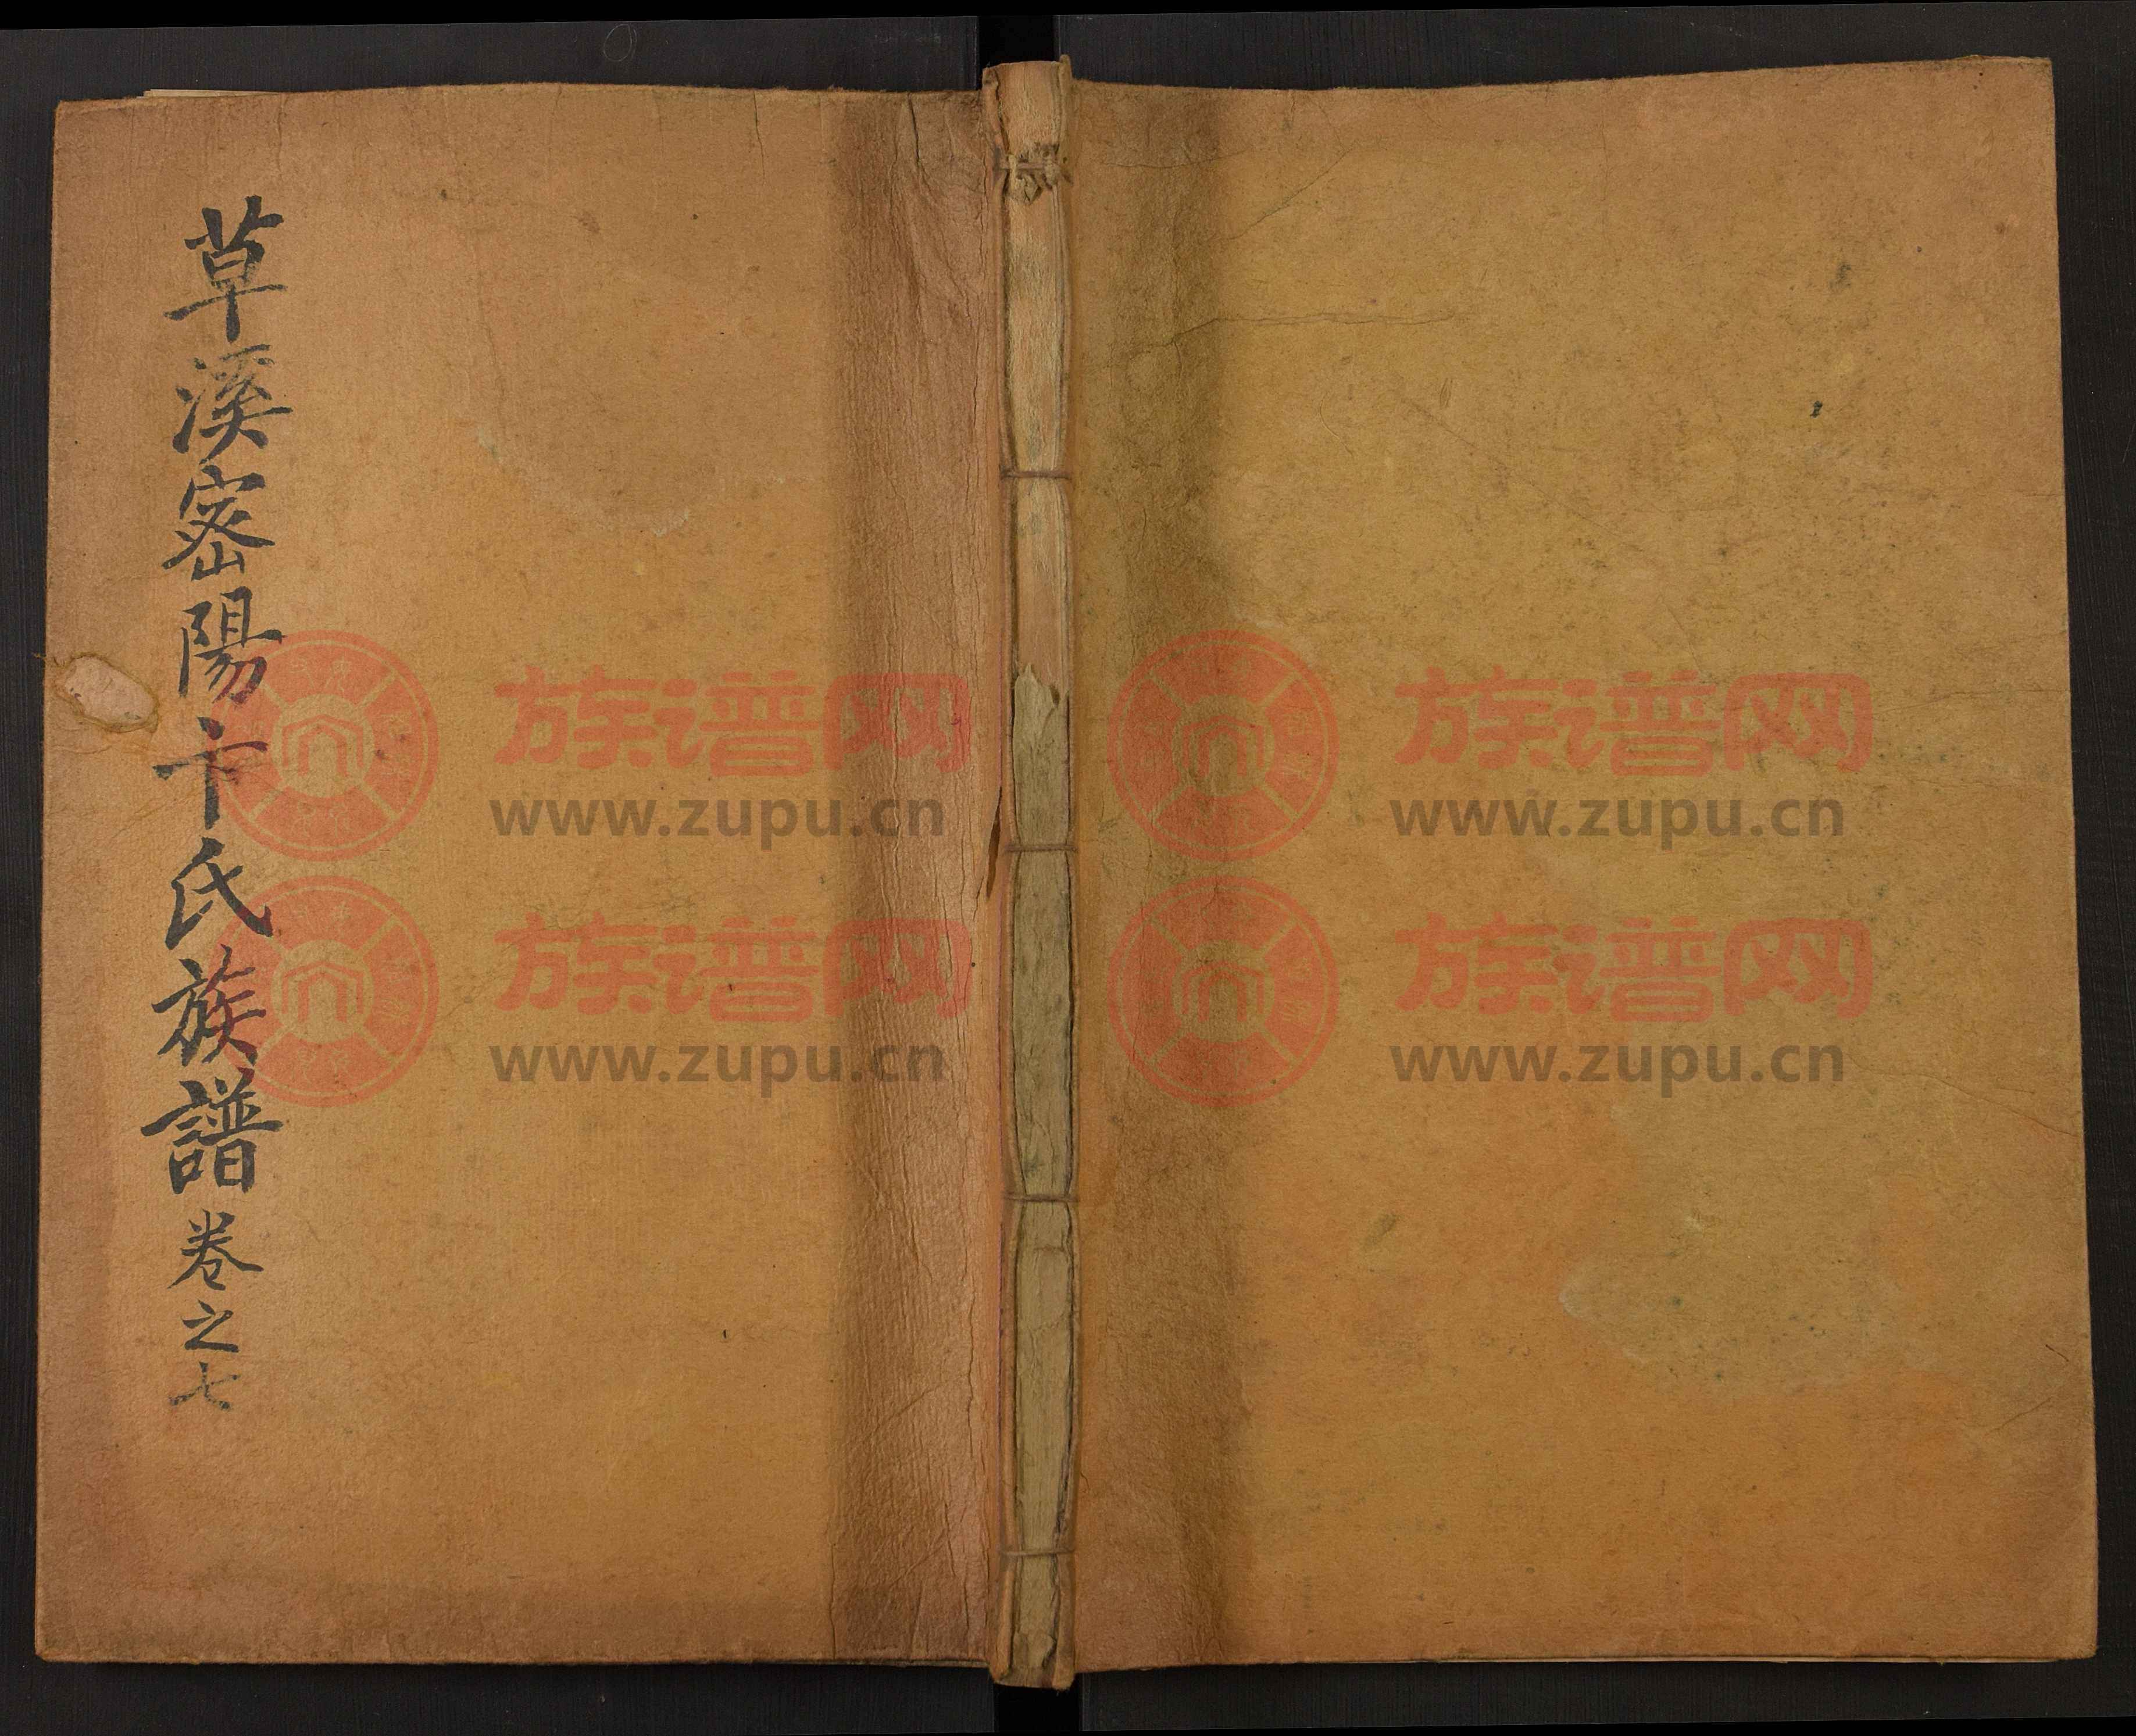 草溪密陽卞氏族譜 卷之七
族谱网
www.zupu.cn
族谱网
www.zupu.cn
族谱网
www.zupu.cn
族谱网
www.zupu.cn